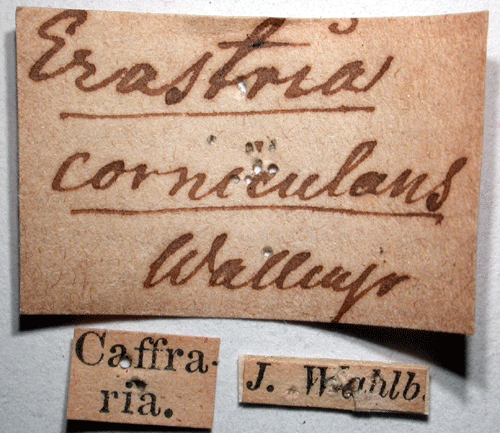 Erastria
corniculans
Wallengr
Caffra-
ria.
J. Wahlb.